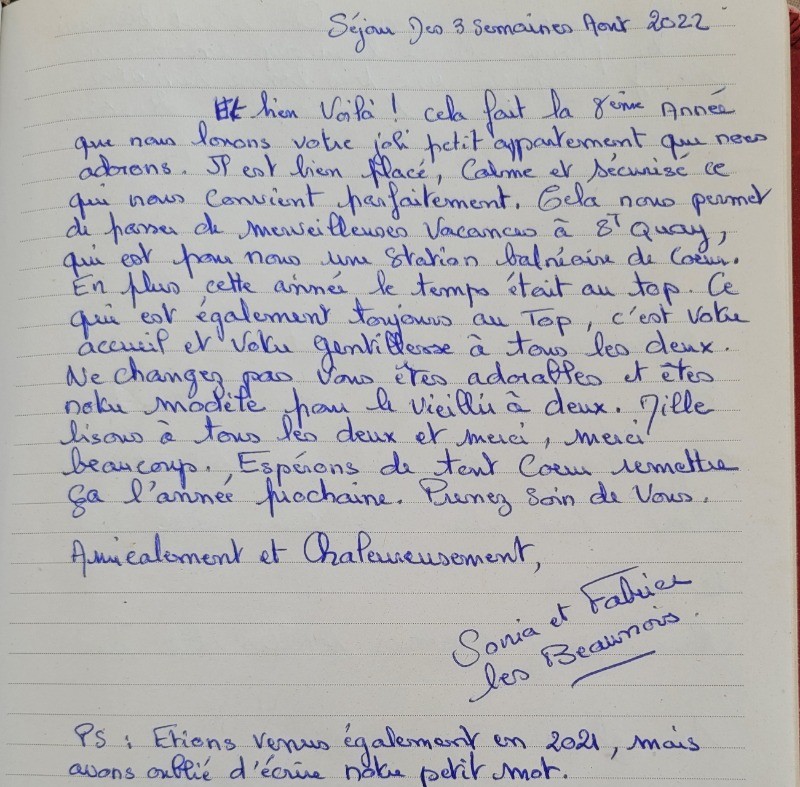 Séjour Des 3 Semaines Aout 2022
Et bien Voilà ! cela fait la 8ème Année
que nous louons votre joli petit appartement que nous
adorons. Il est bien placé, Calme et sécurisé ce
qui nous convient parfaitement. Cela nous permet
de passer de merveilleuses Vacances à ST Quay,
qui est pour nous une station balnéaire de Coeur.
En plus cette année le temps était au top. Ce
qui est également toujours au Top, c'est votre
accueil et votre gentillesse à tous les deux.
Ne changez pas vous êtes adorables et êtes
notre modèle pour le vieillir à deux. Mille
bisous à tous les deux et merci, merci
beaucoup. Espérons de tout Coeur remettre
ça l'année prochaine. Prenez soin de Vous.
Amicalement et Chaleureusement,
Sonia et Fabrice
les Beaunois.
PS : Etions venus également en 2021, mais
avons oublié d'écrire notre petit mot.